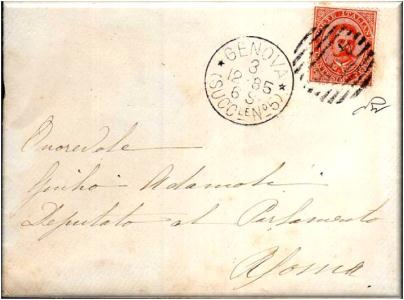 POSTE ITALIANE
GENOVA
3
12-85
6 S
(SUCC.LE N° 5)
Onorevole
Giulio Adamoli
Deputato al Parlamento
Roma